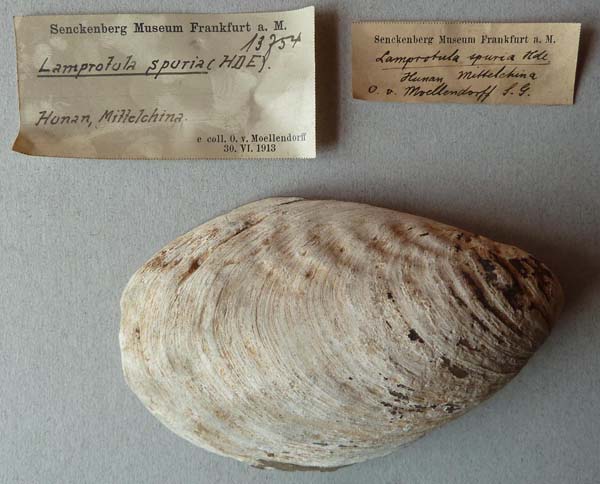 Senckenberg Museum Frankfurt a. M.
13754
Lamprotula spuria (HDE).
Hunan, Mittelchina.
e coll. O. v. Moellendorff
30. VI. 1913
Senckenberg Museum Frankfurt a. M.
Lamprotula spuria Hde
Hunan, Mittelchina
O. v. Moellendorff S. G.